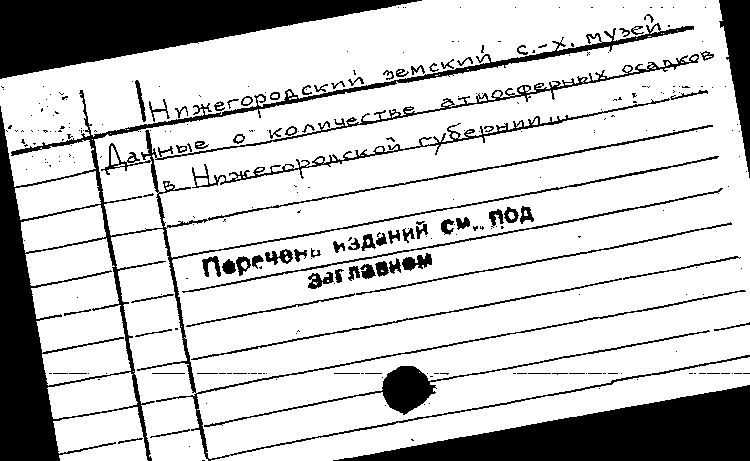 Нижегородский земский с.-х. музей.
Данные о количестве атмосферных осадков
в Нижегородской губернии...
Перечень изданий см. под
заглавием